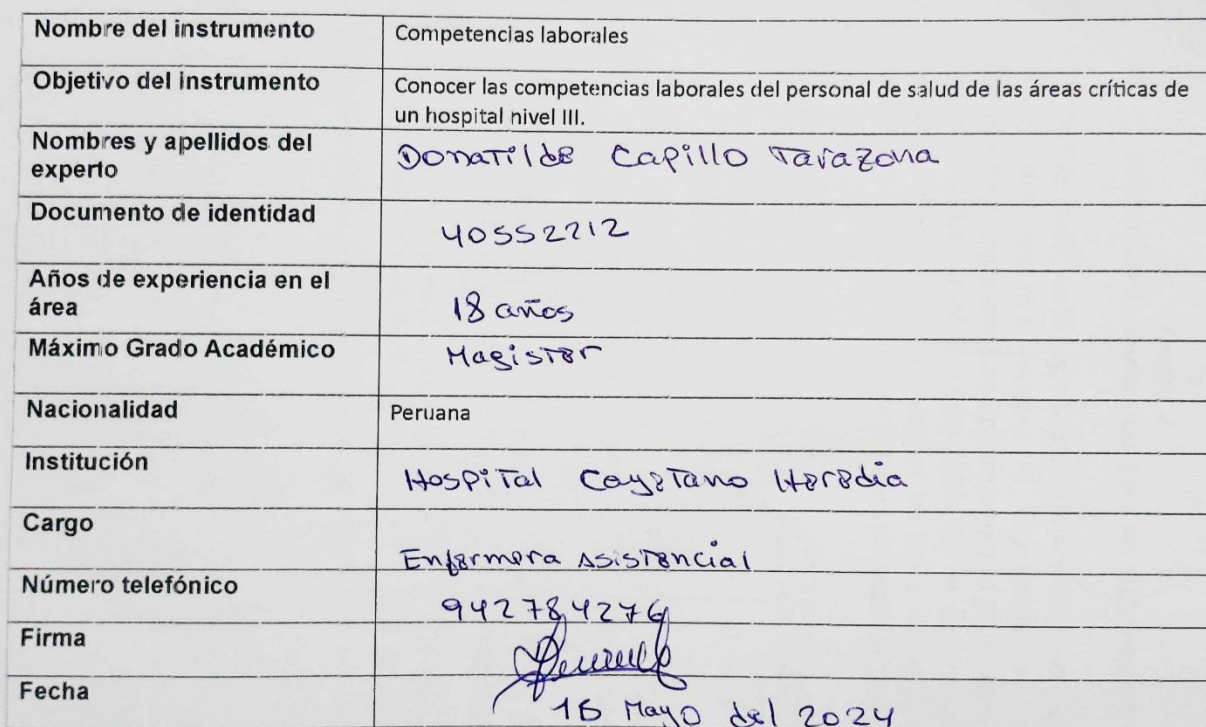 Nombre del instrumento
Competencias laborales
Objetivo del instrumento
Conocer las competencias laborales del personal de salud de las áreas críticas de
un hospital nivel III.
Nombres y apellidos del
experto
Donatilde Capillo Tarazona
Documento de identidad
40552212
Años de experiencia en el
área
18 años
Máximo Grado Académico
Magister
Nacionalidad
Peruana
Institución
Hospital Cayetano Heredia
Cargo
Enfermera Asistencial
Número telefónico
942784276
Firma
Fecha
Mayo del 2024